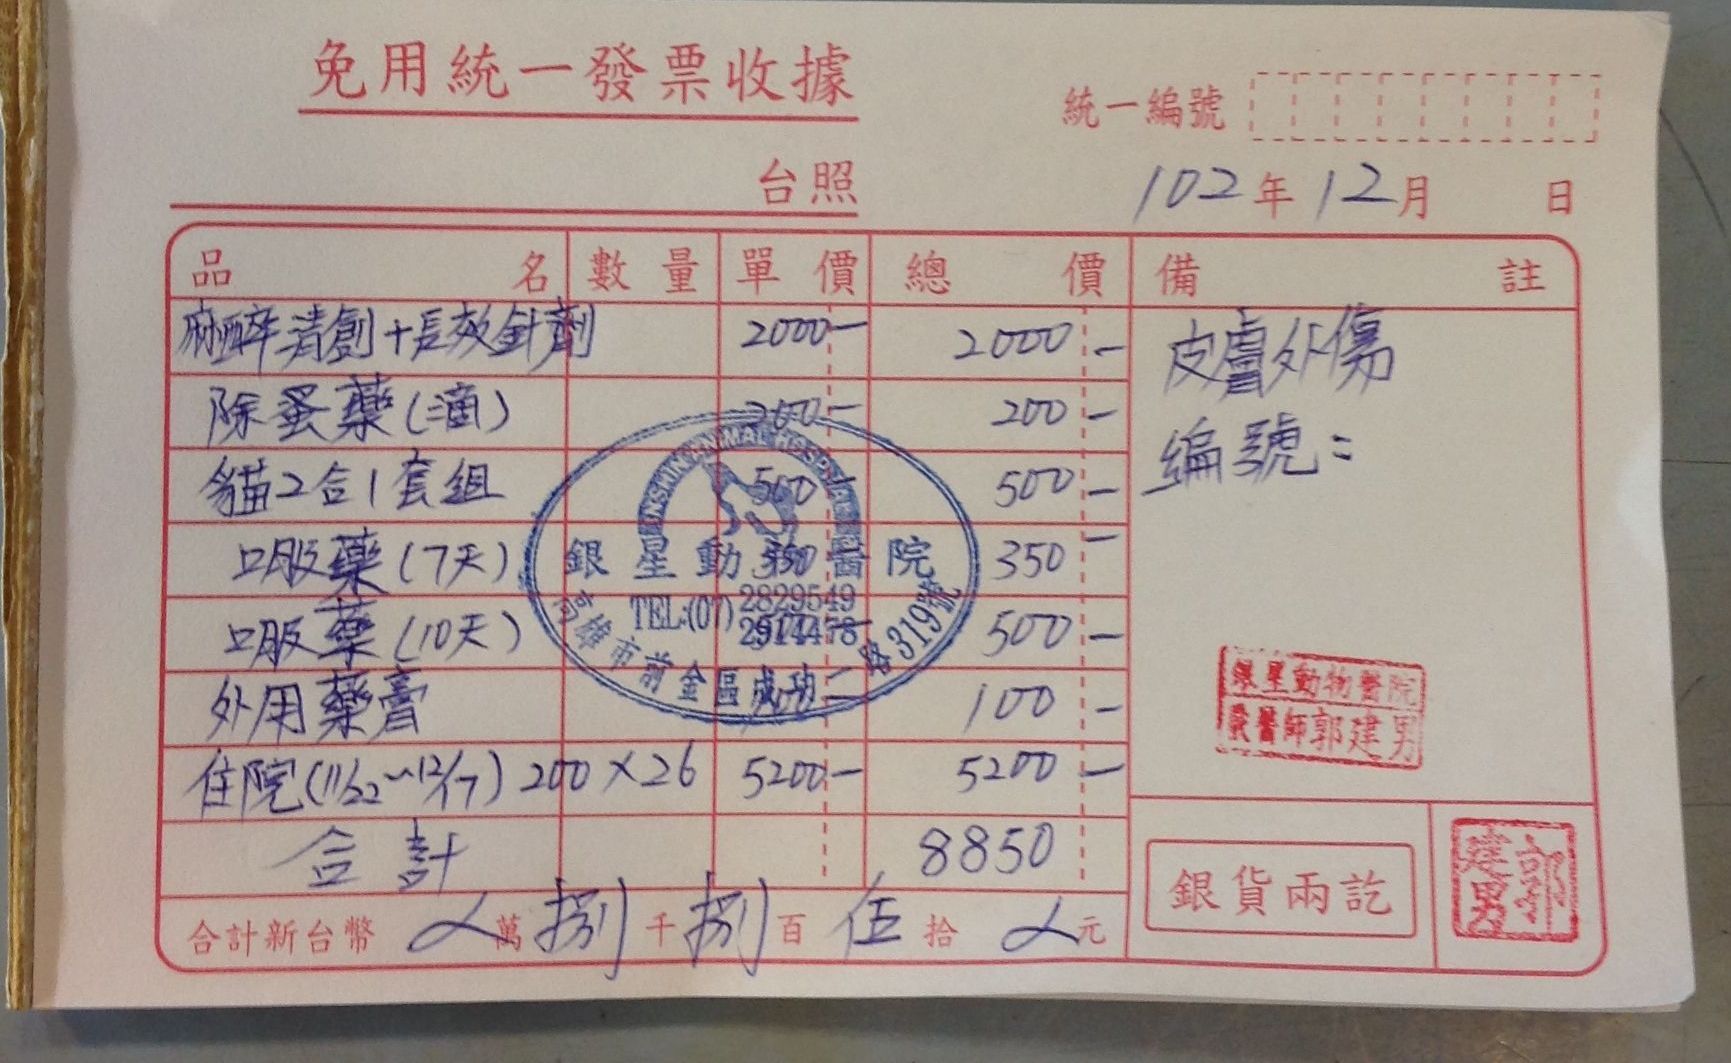 免用統一發票收據
統一編號
台照
102年12月 日
品名 數量 單價 總價 備註
麻醉清創+長效針劑 2000- 2000-
除蚤藥(滴) 200- 200-
貓2合1套組 500- 500-
口服藥(7天) 350 350-
口服藥(10天) 500- 500-
外用藥膏 100- 100-
住院(11/22~12/17) 200×26 5200- 5200-
合計 8850
合計新台幣 萬捌千捌百伍拾 元
皮膚外傷
編號:
ANIMAL HOSPITAL
銀星動物醫院
TEL:(07) 2829549
高雄市前金區成功二路319號
銀星動物醫院
獸醫師郭建男
銀貨兩訖
郭建男